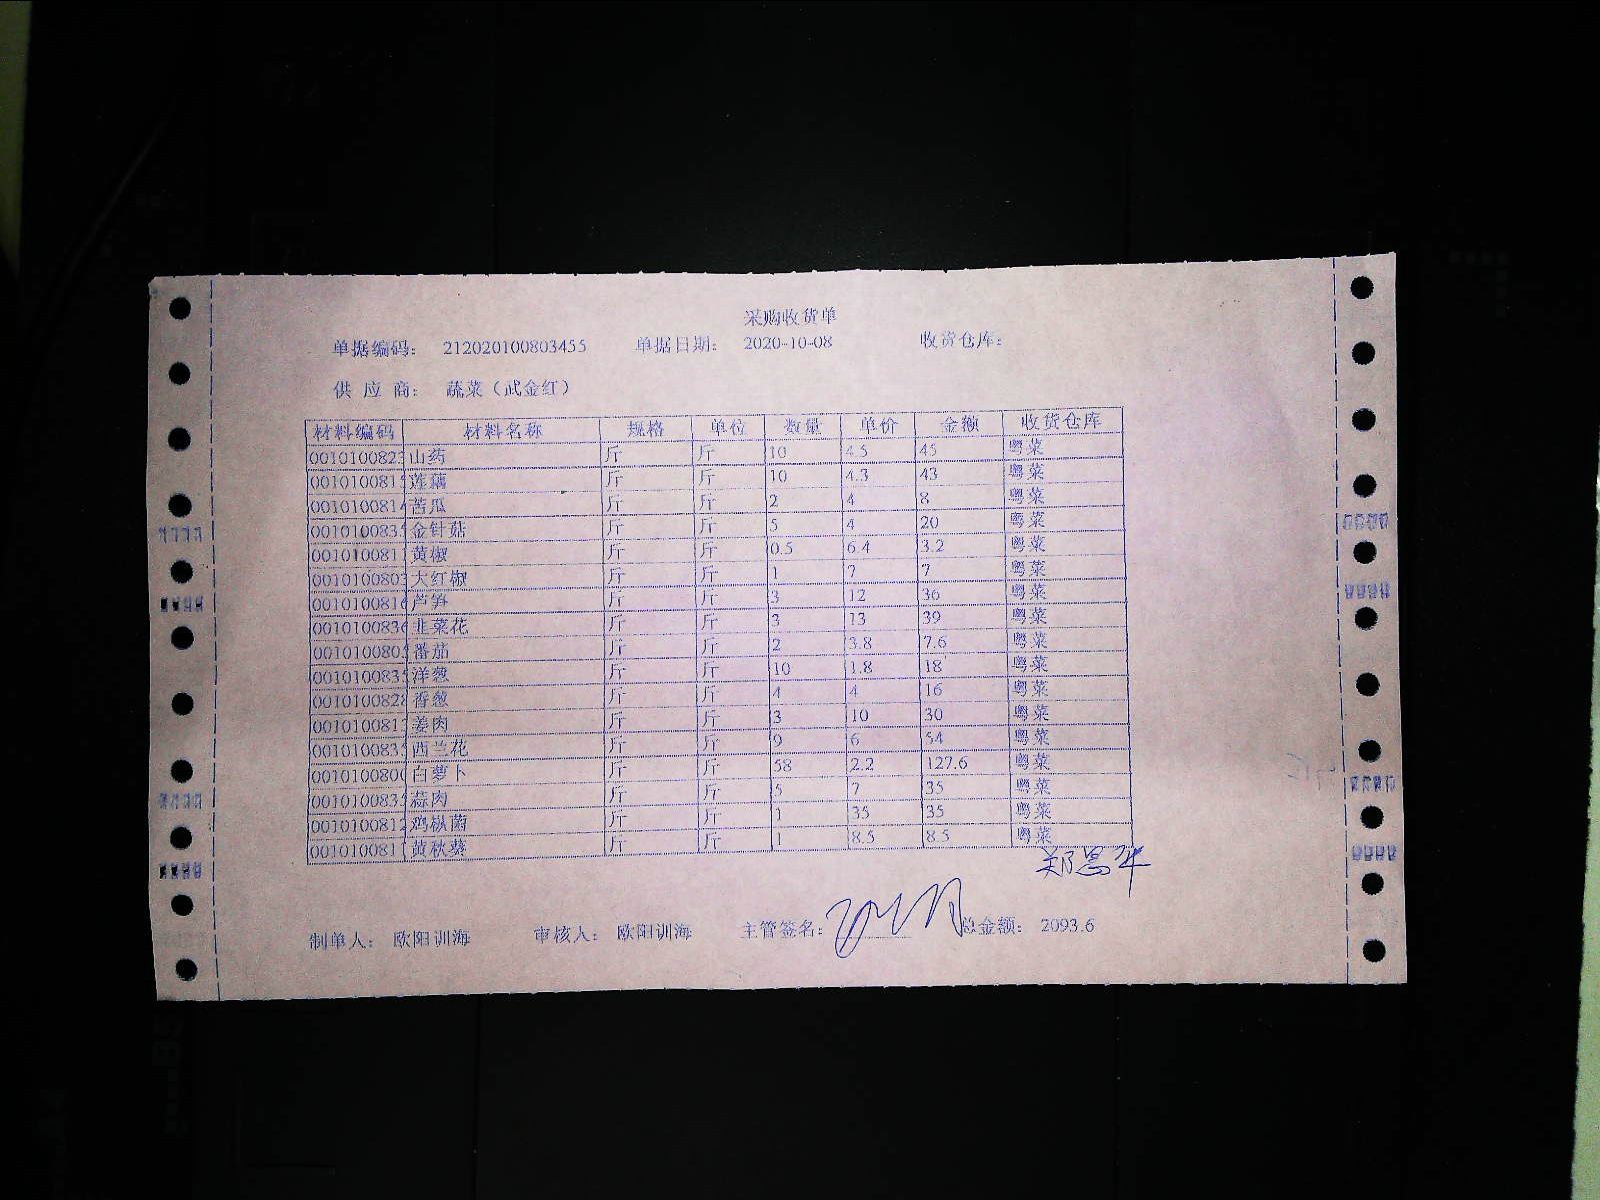 采购收货单
单据编码： 212020100803455 单据日期： 2020-10-08 收货仓库：
供 应 商： 蔬菜（武金红）
材料编码 材料名称 规格 单位 数量 单价 金额 收货仓库
0010100823 山药 斤 斤 10 4.5 45 粤菜
001010081 莲藕 斤 斤 10 4.3 43 粤菜
001010081 苦瓜 斤 斤 2 4 8 粤菜
001010083 金针菇 斤 斤 5 4 20 粤菜
001010081 黄椒 斤 斤 0.5 6.4 3.2 粤菜
001010080 大红椒 斤 斤 1 7 7 粤菜
001010081 芦笋 斤 斤 3 12 36 粤菜
001010083 韭菜花 斤 斤 3 13 39 粤菜
001010080 番茄 斤 斤 2 3.8 7.6 粤菜
001010083 洋葱 斤 斤 10 1.8 18 粤菜
001010082 香葱 斤 斤 4 4 16 粤菜
001010081 姜肉 斤 斤 3 10 30 粤菜
001010083 西兰花 斤 斤 9 6 54 粤菜
001010080 白萝卜 斤 斤 58 2.2 127.6 粤菜
001010083 蒜肉 斤 斤 5 7 35 粤菜
001010081 鸡枞菌 斤 斤 1 35 35 粤菜
001010081 黄秋葵 斤 斤 1 8.5 8.5 粤菜
制单人： 欧阳训海 审核人： 欧阳训海 主管签名： 总金额： 2093.6